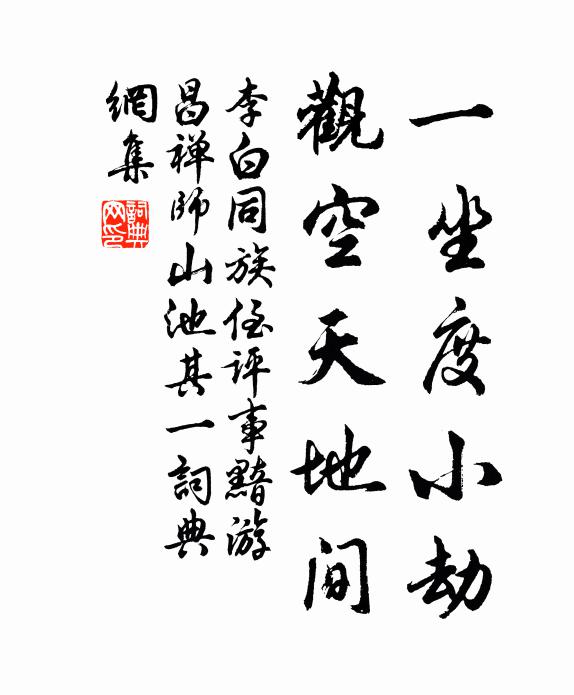 一坐度小劫
觀空天地間
李白同族侄評事黯游
昌禅師山池其一詞典
網集
詞典
网印